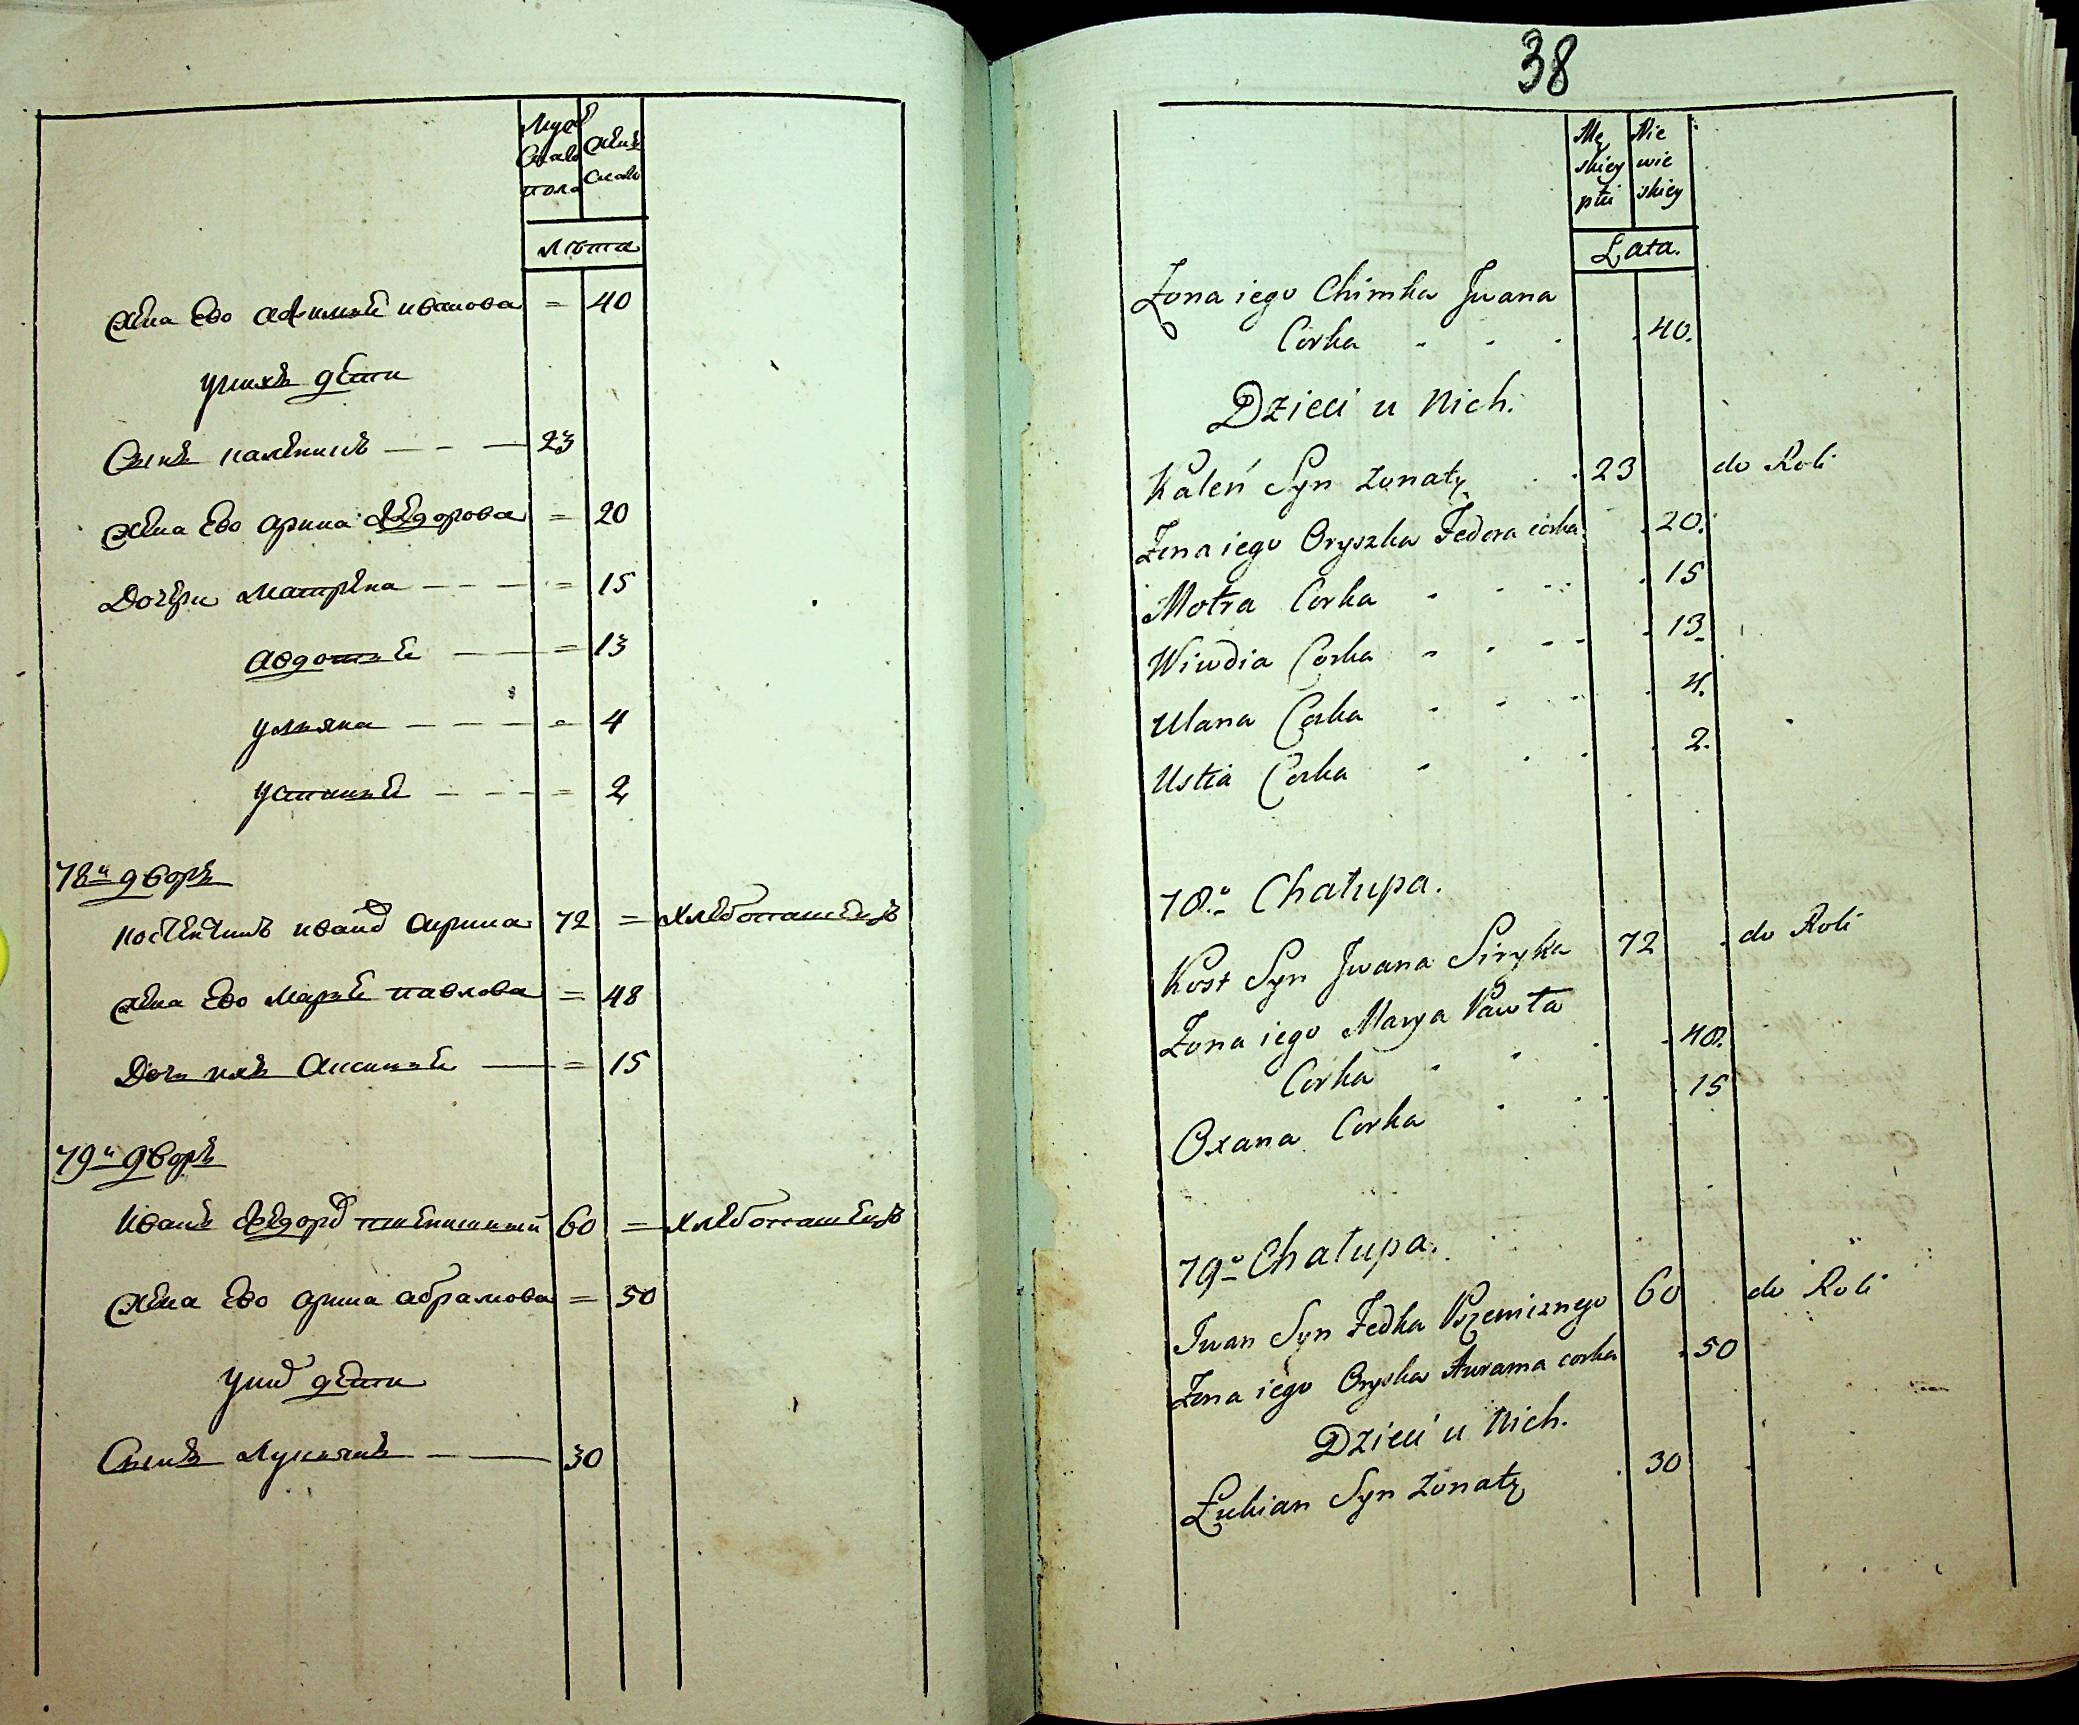 Муж
Скаго
пола
Жен
скаго
лѣта
жена Ево афимиѣ иванова = 40
уних дѣти
Сынъ каленикъ 23
жена Ево арина Федорова = 20
Дочери матрена = 15
авдотиѣ = 13
улияна = 4
устиниѣ = 2
78й дворъ
костентинъ иванов сирика 72 = хлебопашецъ
жена Ево мариѣ павлова = 48
Дочь их Аксиниѣ = 15
79й дворъ
Иванъ Федоров пшенишний 60 = хлебопашецъ
жена Ево арина абрамова = 50
уних дѣти
Сынъ Лукиянъ 30
38
Mę
skiey
płci
Nie
wie
skiey
Lata.
Żona iego Chimka Jwana
Corka 40.
Dzieci u Nich.
Kaleń Syn żonaty 23 do Roli
Żona iego Oryszka Fedora córka 20.
Motra Corka 15
Wiwdia Corka 13.
Ulana Corka 4.
Ustia Corka 2.
78o Chałupa.
Kost Syn Jwana Siryka 72 do Roli
Żona iego Marya Pawła
Corka 48.
Oxana Corka 15
79o Chałupa.
Jwan Syn Fedka Pszenicznego 60 do Roli
Żona iego Oryska Awrama corka 50
Dzieci u Nich.
Łukian Syn żonaty 30